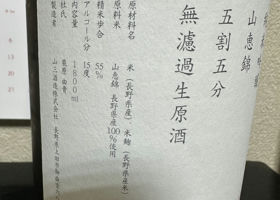 山恵錦
五割五分
無濾過生原酒
原材料名 米(長野県産)、米麹(長野県産米)
原料米 山恵錦 長野県産100%使用
精米歩合 55%
アルコール分 15度
内容量 1800ml
杜氏
製造者 山三酒造株式会社 長野県上田市